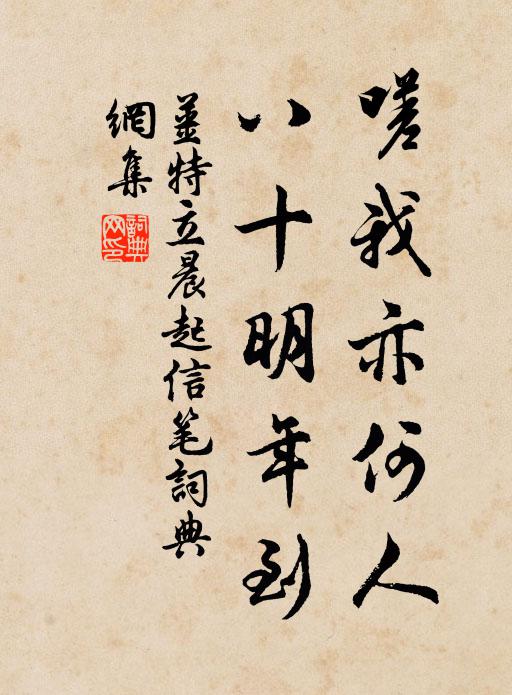 嗟我亦何人
八十明年到
姜特立晨起信笔詞典
網集
詞典
网印